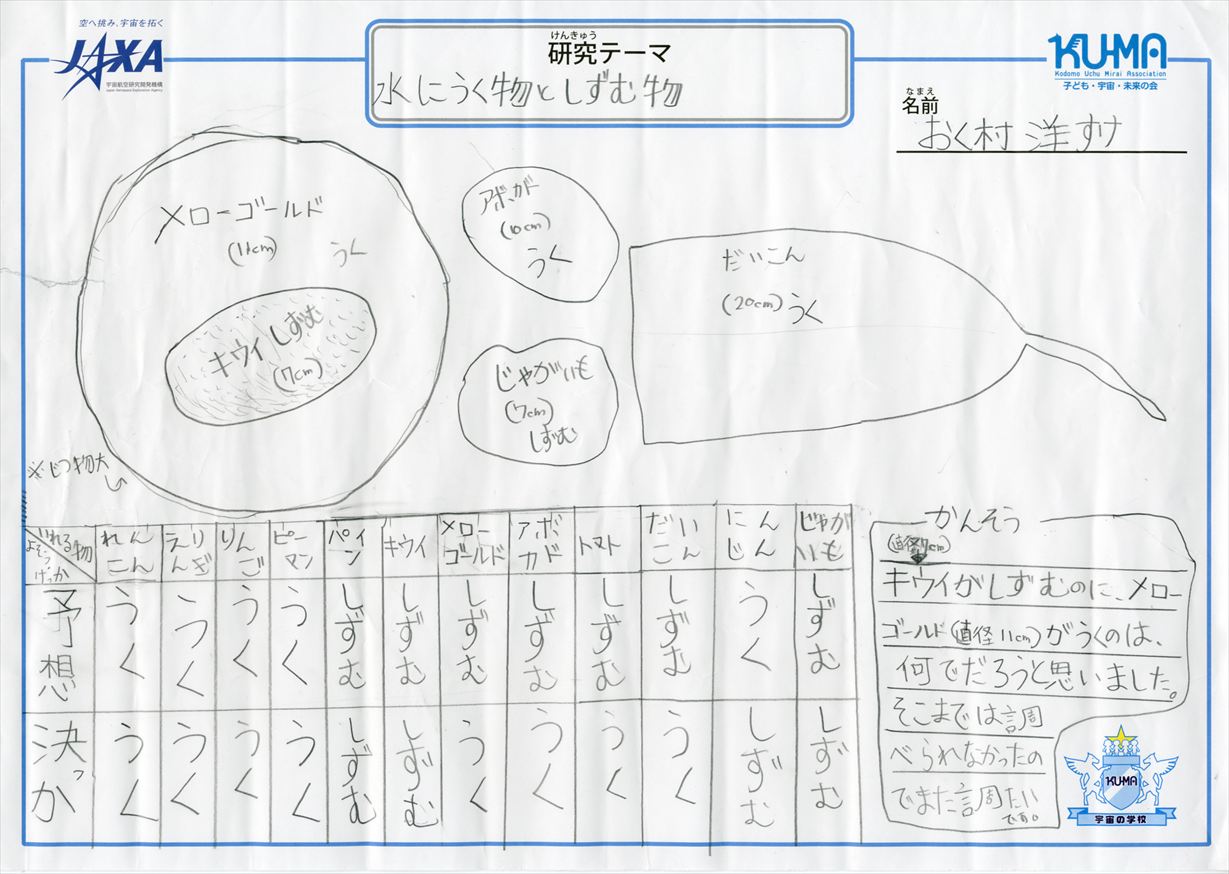 空へ挑み、宇宙を拓く
JAXA
宇宙航空研究開発機構
Japan Aerospace Exploration Agency
けんきゅう
研究テーマ
水にうく物としずむ物
KU-MA
Kodomo Uchu Mirai Association
子ども・宇宙・未来の会
なまえ
名前
おく村 洋すけ
メローゴールド
(11cm)
うく
キウイ しずむ
(7cm)
アボカド
(10cm)
うく
じゃがいも
(7cm)
しずむ
だいこん
(20cm) うく
※じつ物大
いれる物 よそう けっか
れんこん えりんぎ りんご ピーマン パイン キウイ メローゴールド アボカド トマト だいこん にんじん じゃがいも
予想 うく うく うく うく しずむ しずむ しずむ しずむ しずむ しずむ うく しずむ
決っか うく うく うく うく しずむ しずむ うく うく うく うく しずむ しずむ
かんそう
(直径7cm)
キウイがしずむのに、メロー
ゴールド(直径11cm)がうくのは、
何でだろうと思いました。
そこまでは調
べられなかったの
でまた調たい
です。
KU-MA
宇宙の学校